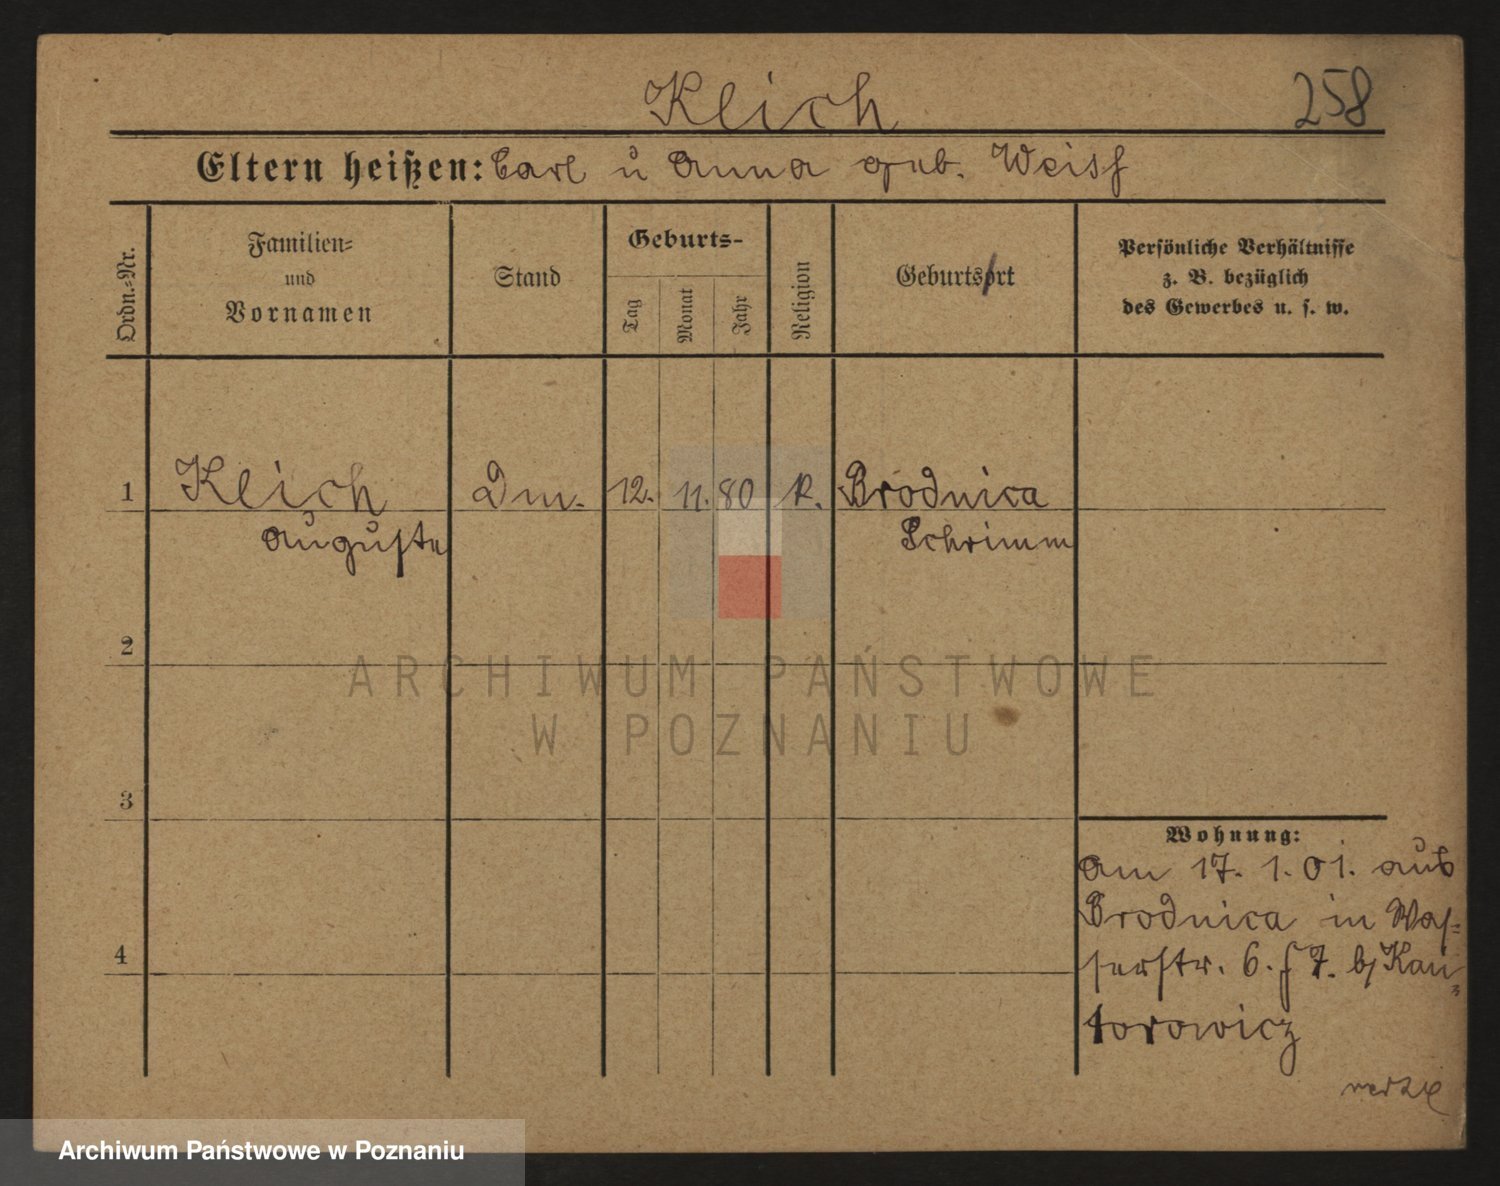 Kleich
258
Eltern heißen: Carl u Anna geb. Weiss
Ordn.-Nr.
Familien-
und
Vornamen
Stand
Geburts-
Tag
Monat
Jahr
Religion
Geburtsort
Persönliche Verhältnisse
z. B. bezüglich
des Gewerbes u. s. w.
1 Kleich Dm. 12. 11. 80 R. Brodnica
Auguste Schrimm
2
ARCHIWUM PAŃSTWOWE
W POZNANIU
3
Wohnung:
am 17. 1. 01. aus
Brodnica in Was=
serstr. 6. 7. b/ Kan=
torowicz
4
Archiwum Państwowe w Poznaniu